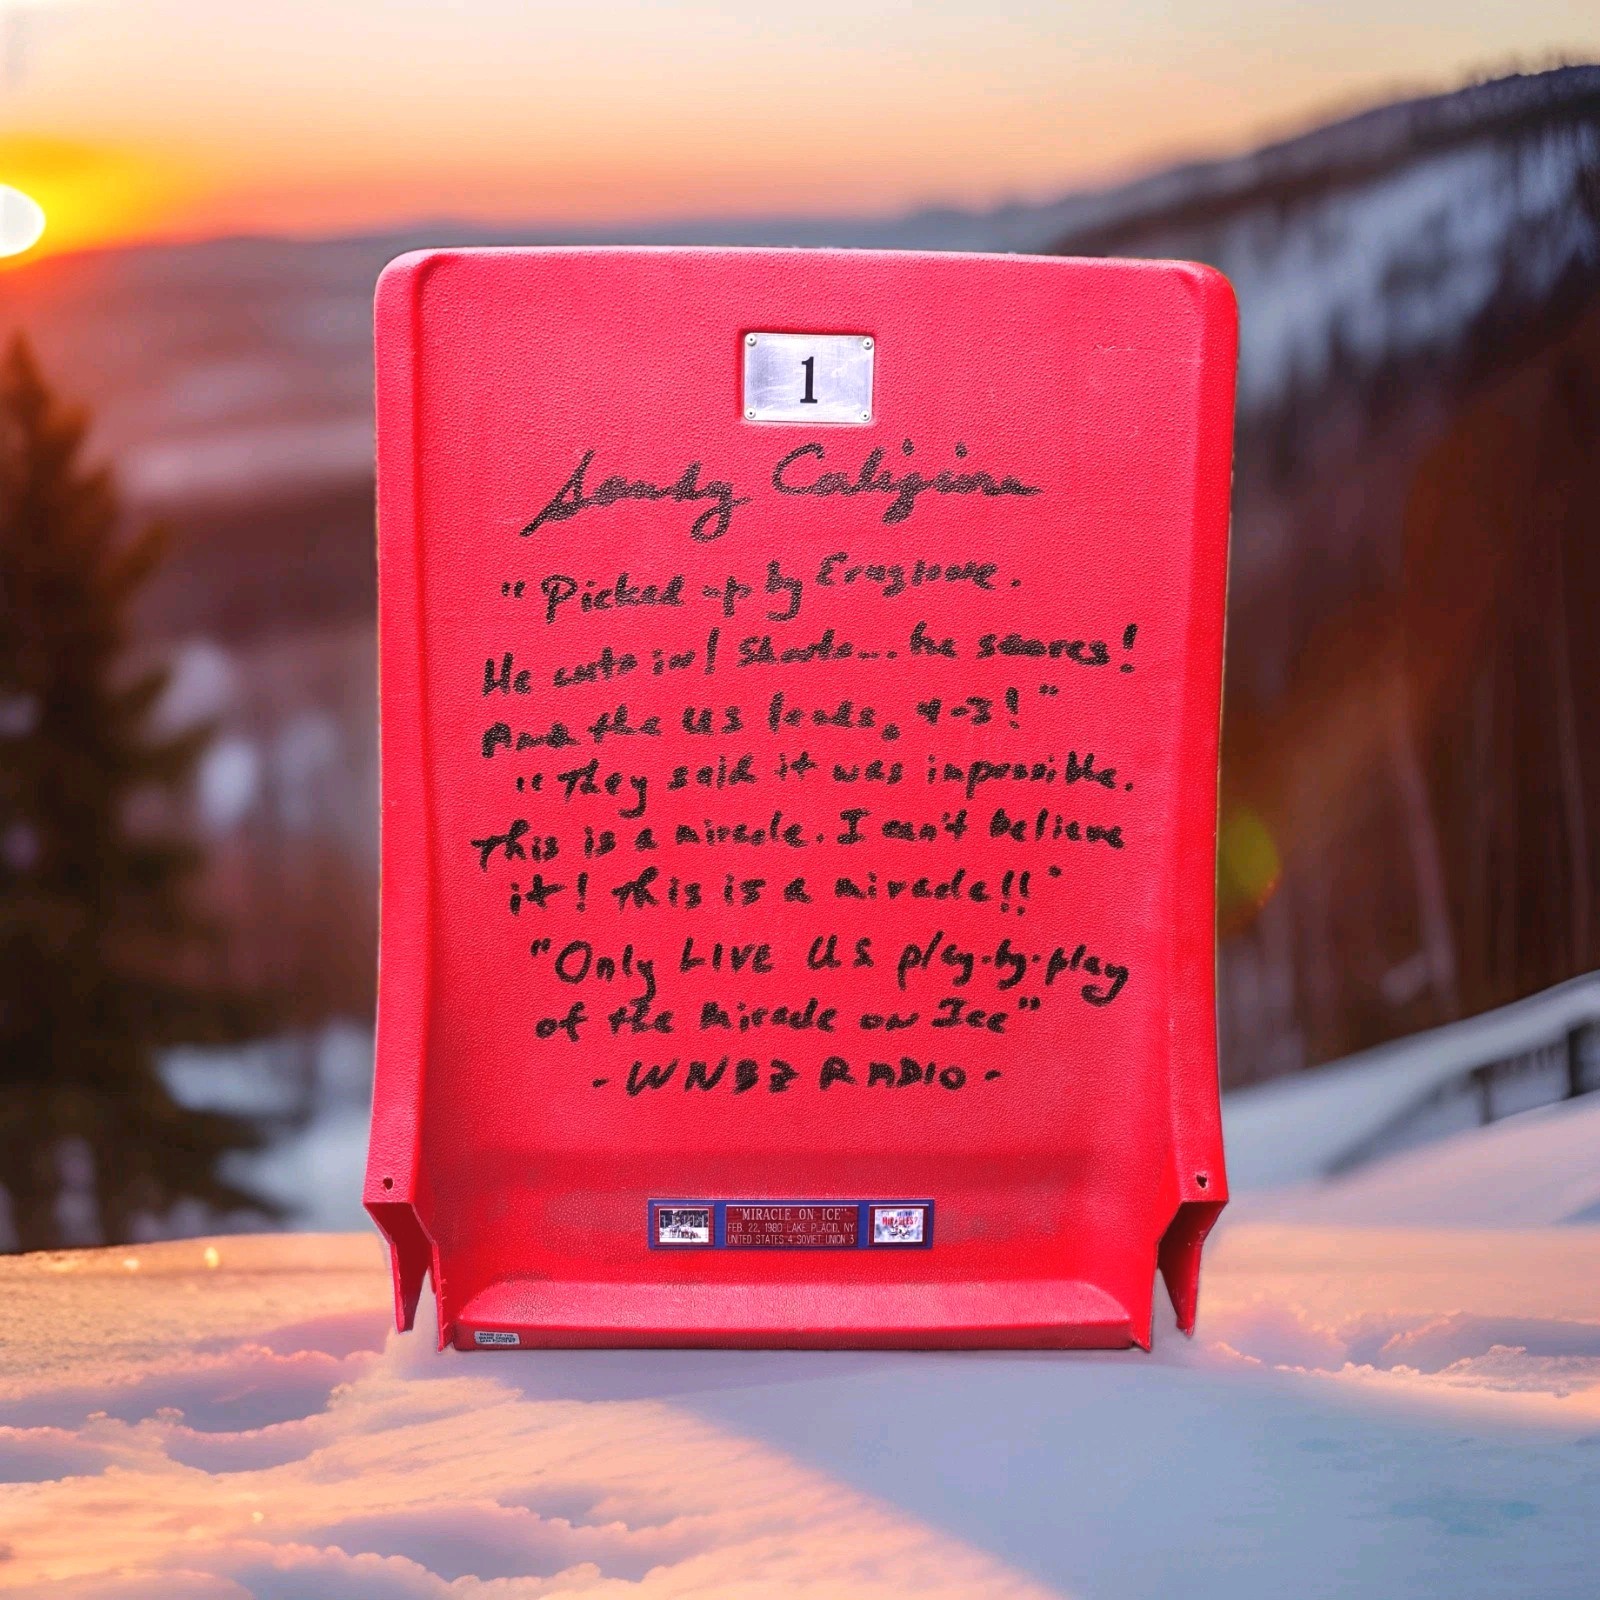 1
Sandy Caligiore
"Picked up by Eruzione.
He cuts in/ Shoots... he scores!
And the US leads, 4-3!"
"They said it was impossible.
This is a miracle. I can't believe
it! This is a miracle!!"
"Only LIVE US play-by-play
of the Miracle on Ice"
- WNBZ RADIO -
"MIRACLE ON ICE"
FEB. 22, 1980 LAKE PLACID, NY
UNITED STATES 4 SOVIET UNION 3